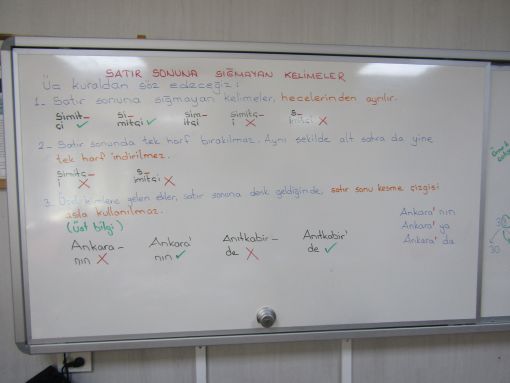 SATIR SONUNA SIĞMAYAN KELİMELER
Üç kuraldan söz edeceğiz:
1- Satır sonuna sığmayan kelimeler, hecelerinden ayrılır.
Simit- Si- Sim- Simitç- S-
çi ✓ mitçi ✓ itçi i ✗ imitçi ✗
2- Satır sonunda tek harf bırakılmaz. Aynı şekilde alt satıra da yine
tek harf indirilmez.
Simitç- S-
i ✗ imitçi ✗
3. Özel isimlere gelen ekler, satır sonuna denk geldiğinde, satır sonu kesme çizgisi
asla kullanılmaz.
(üst bilgi)
Ankara'nın
Ankara'ya
Ankara'da
Ankara- Ankara' Anıtkabir- Anıtkabir'
nın ✗ nın ✓ de ✗ de ✓
30